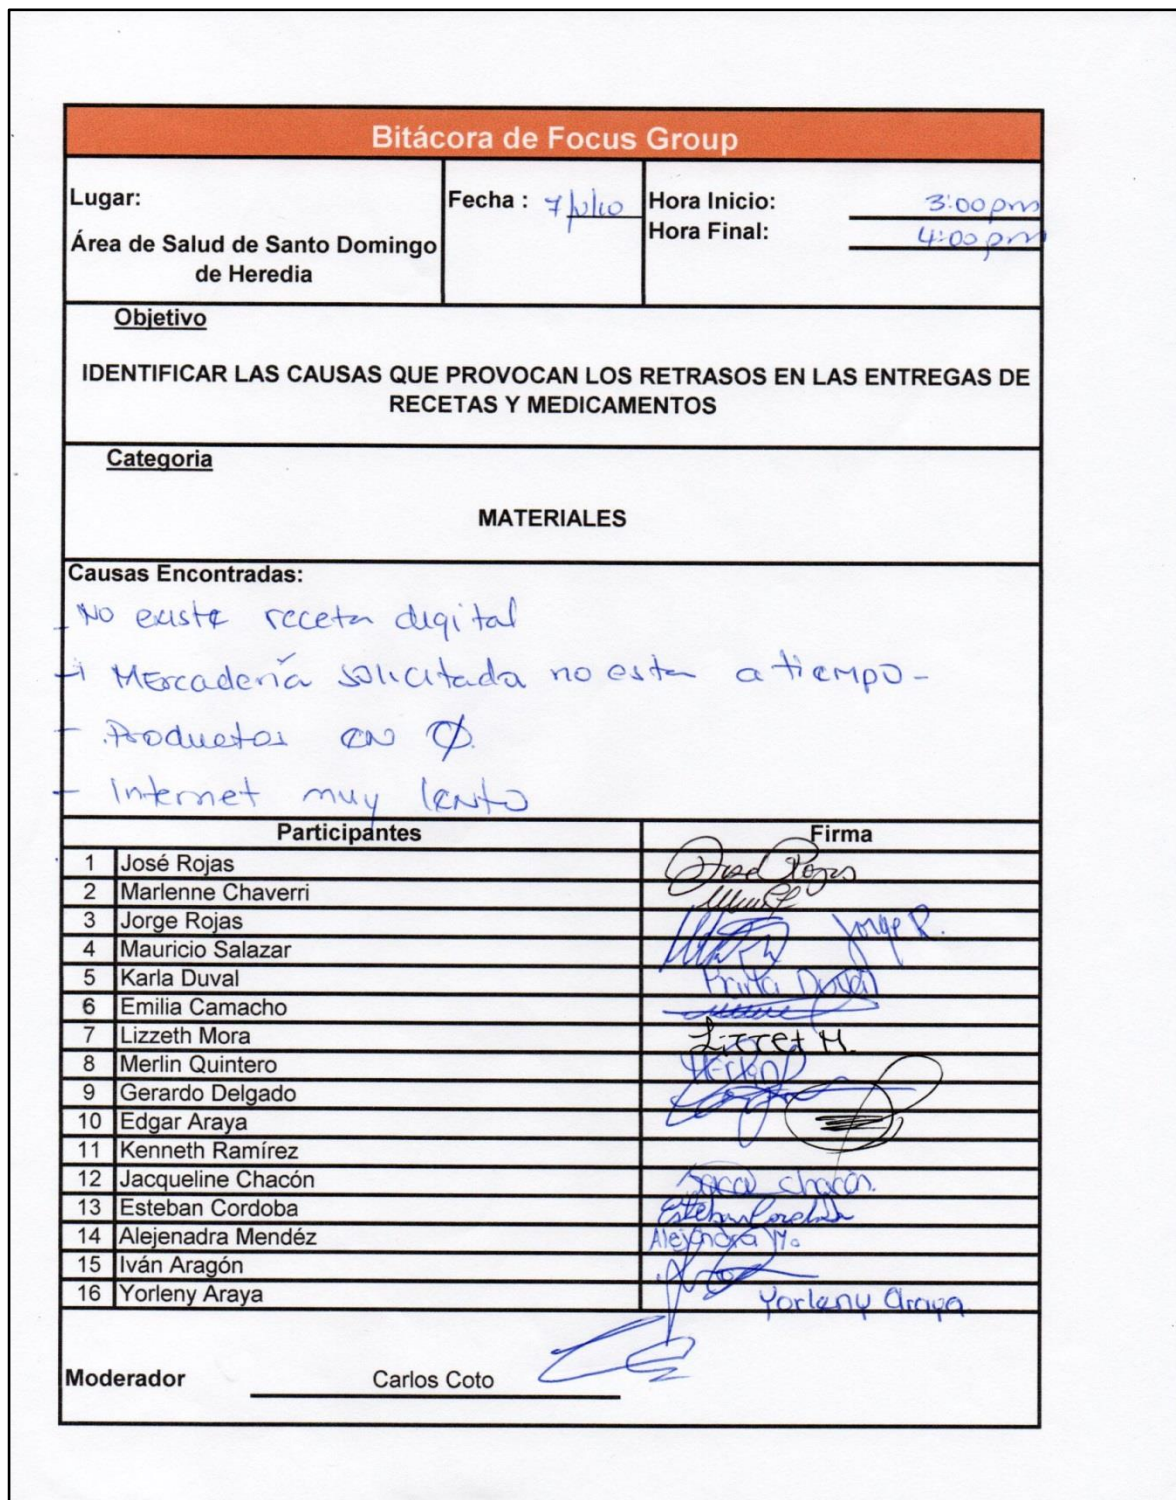 Bitácora de Focus Group
Lugar:
Área de Salud de Santo Domingo
de Heredia
Fecha :
Hora Inicio: 3:00 pm
Hora Final: 4:00 pm
Objetivo
IDENTIFICAR LAS CAUSAS QUE PROVOCAN LOS RETRASOS EN LAS ENTREGAS DE
RECETAS Y MEDICAMENTOS
Categoria
MATERIALES
Causas Encontradas:
- No existe receta digital
- Mercadería solicitada no esta a tiempo -
- Productos en Ø.
- Internet muy lento
Participantes Firma
1 José Rojas José Rojas
2 Marlenne Chaverri
3 Jorge Rojas Jorge R.
4 Mauricio Salazar
5 Karla Duval Karla Duval
6 Emilia Camacho
7 Lizzeth Mora Lizzet M.
8 Merlin Quintero
9 Gerardo Delgado
10 Edgar Araya
11 Kenneth Ramírez
12 Jacqueline Chacón chacón.
13 Esteban Cordoba Esteban
14 Alejenadra Mendéz Alejandra M.
15 Iván Aragón
16 Yorleny Araya Yorleny Araya
Moderador Carlos Coto